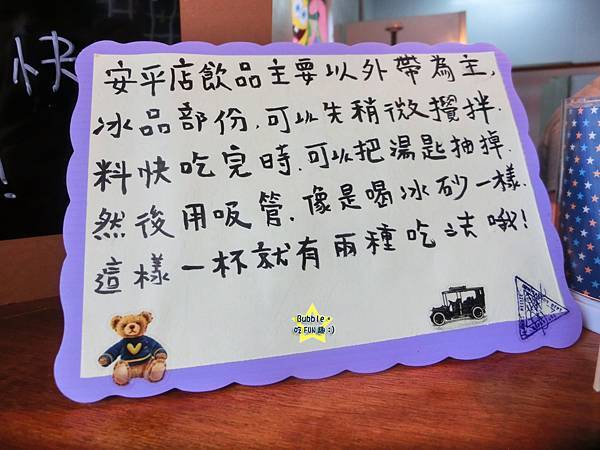 快
!
安平店飲品主要以外帶為主,
冰品部份,可以先稍微攪拌.
料快吃完時.可以把湯匙抽掉.
然後用吸管.像是喝冰砂一樣.
這樣一杯就有兩種吃法哦!
Bubble.
吃FUN趣:)